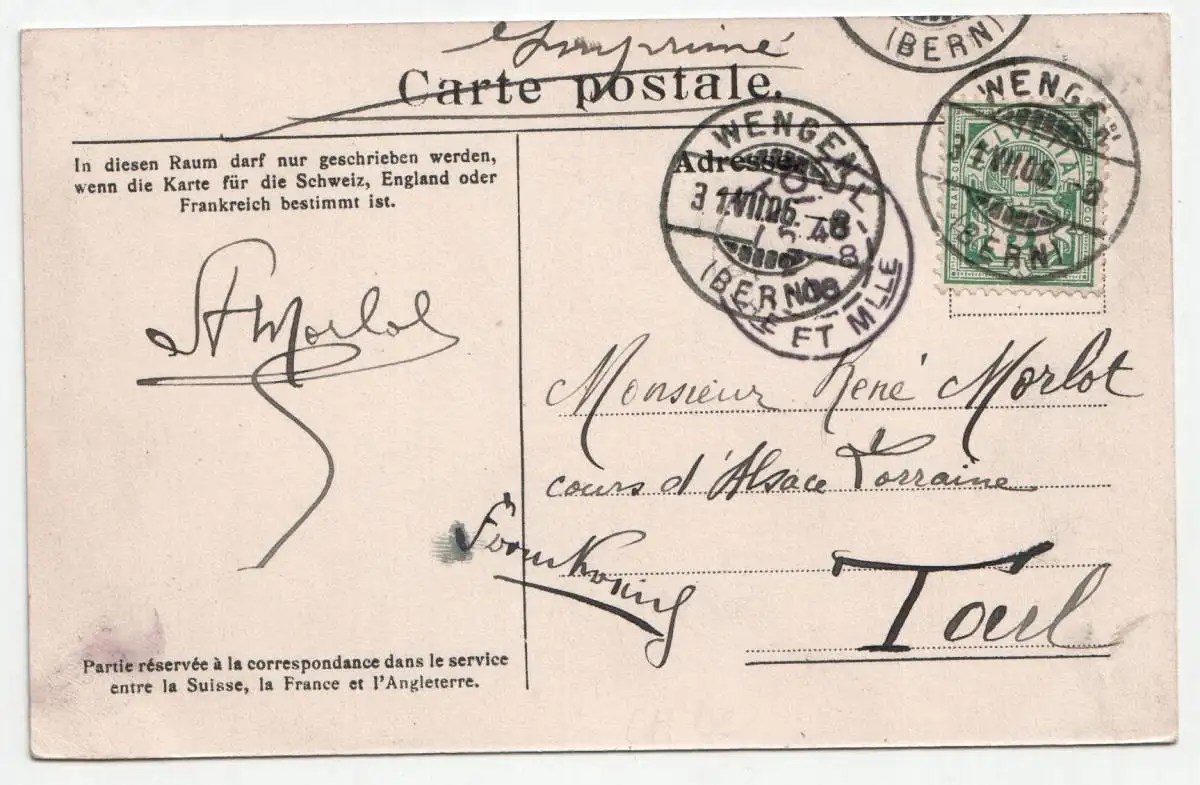 Imprimé
Carte postale.
(BERN)
WENGEN
31.VII.06.-8
(BERN)
HELVETIA
FRANCO
In diesen Raum darf nur geschrieben werden,
wenn die Karte für die Schweiz, England oder
Frankreich bestimmt ist.
Adresse
WENGEN
31.VII.06.-8
(BERN)
TOUL
48
8
06
ET MLLE
Morlot
Monsieur René Morlot
cours d'Alsace Lorraine
Toul
Partie réservée à la correspondance dans le service
entre la Suisse, la France et l'Angleterre.